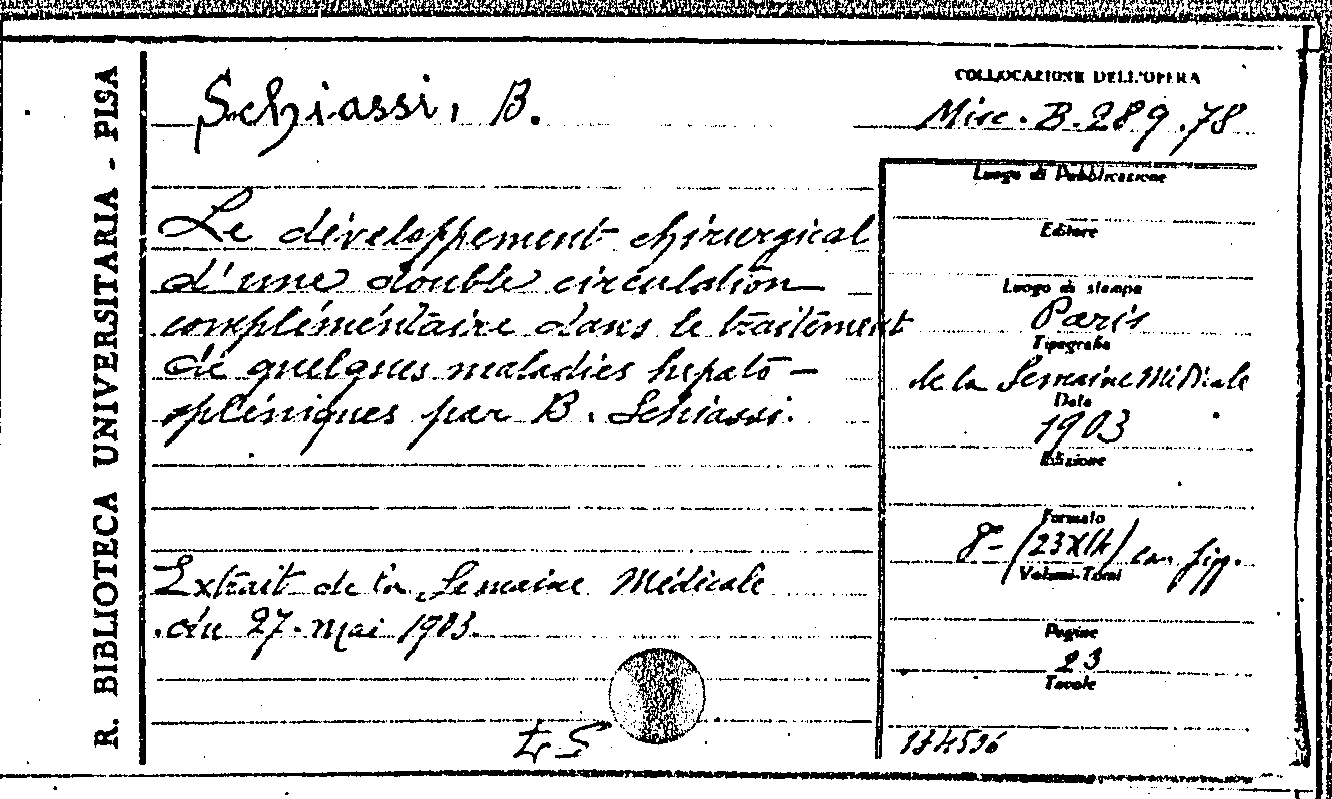 R. BIBLIOTECA UNIVERSITARIA - PISA
Schiassi, B.
COLLOCAZIONE DELL'OPERA
Misc. B. 289.78
Le développement chirurgical
d'une double circulation
complémentaire dans le traitement
de quelques maladies hepato-
spléniques par B. Schiassi.
Extrait de la Semaine Médicale
du 27. Mai 1903.
Luogo di Pubblicazione
Editore
Luogo di stampa
Paris
Tipografia
de la Semaine Médicale
Data
1903
Edizione
Formato
8º (23X14) con figg.
Volumi-Tomi
Pagine
23
Tavole
174536